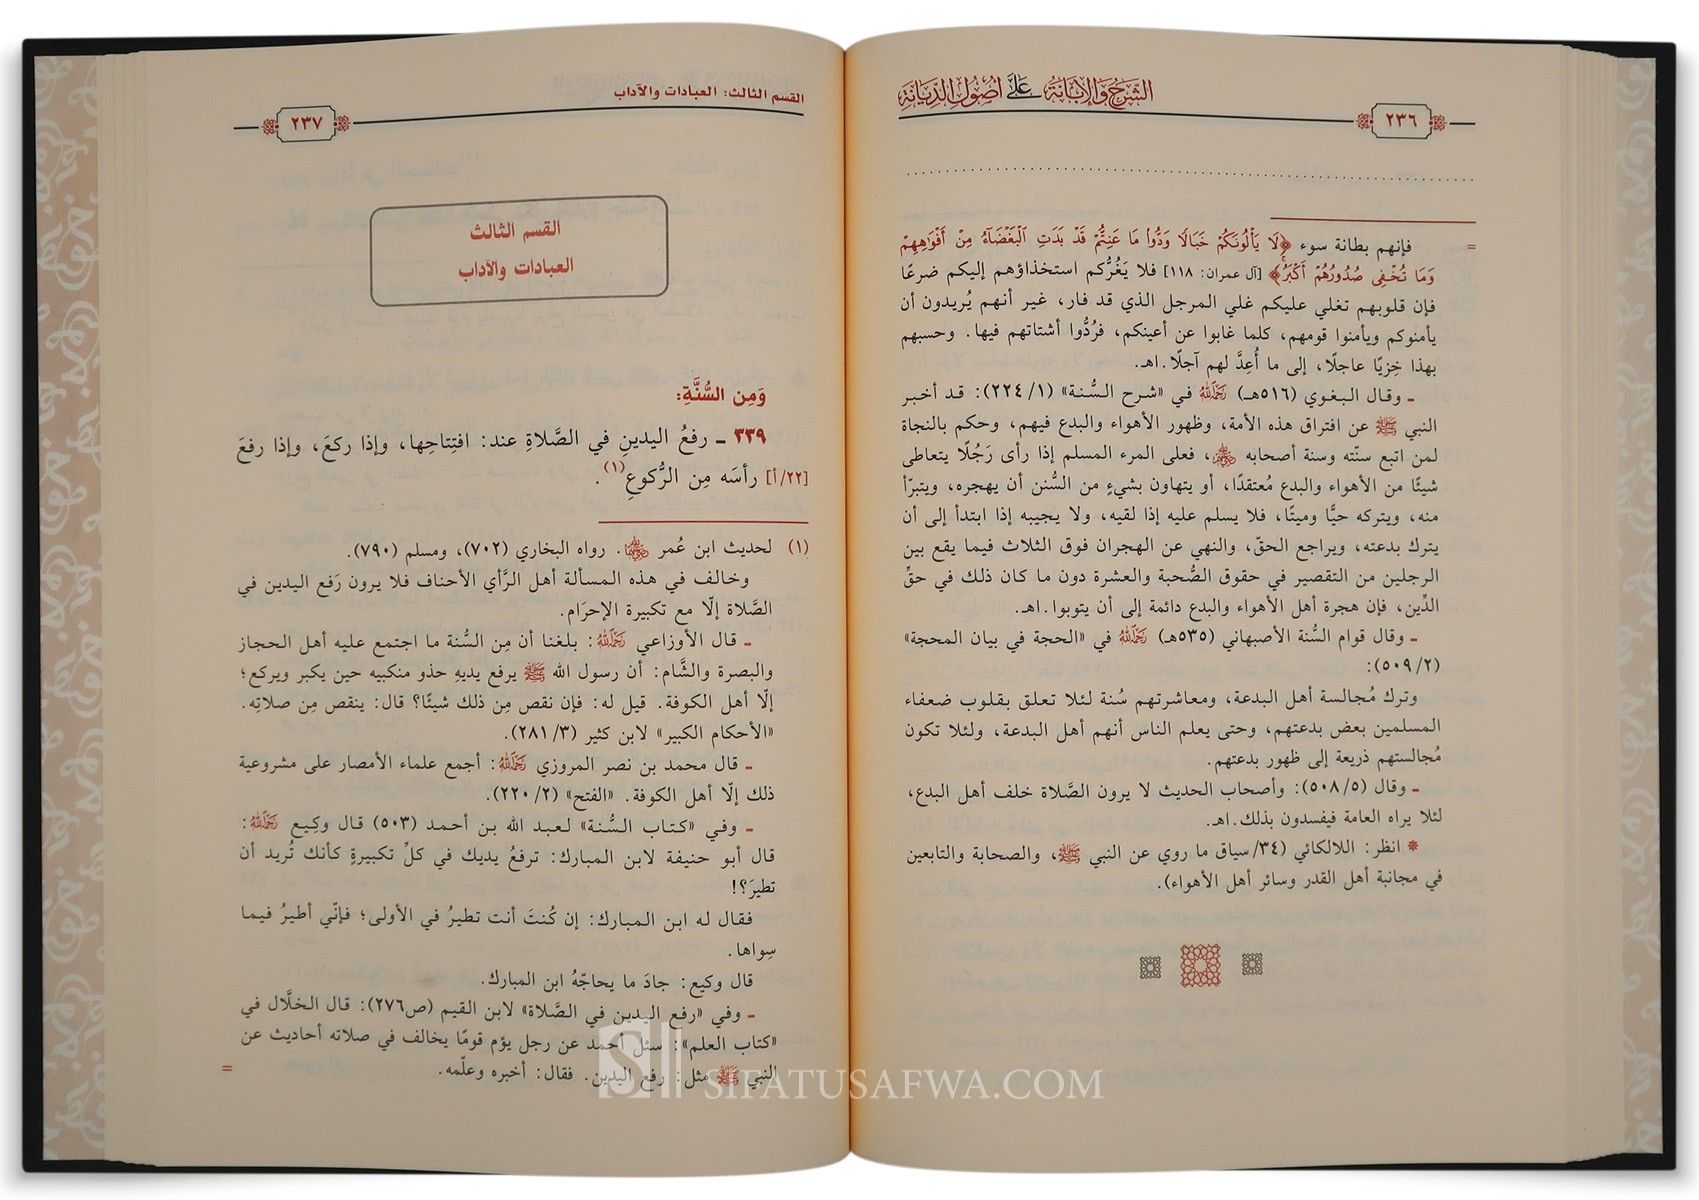 الشرح والإبانة على أصول الديانة
٢٣٦
= فإنهم بطانة سوء ﴿لَا يَأْلُونَكُمْ خَبَالًا وَدُّوا مَا عَنِتُّمْ قَدْ بَدَتِ الْبَغْضَاءُ مِنْ أَفْوَاهِهِمْ
وَمَا تُخْفِي صُدُورُهُمْ أَكْبَرُ﴾ [آل عمران: ١١٨] فلا يَغُرُّكم استخذاؤهم إليكم ضرعًا
فإن قلوبهم تغلي عليكم غلي المرجل الذي قد فار، غير أنهم يُريدون أن
يأمنوكم ويأمنوا قومهم، كلما غابوا عن أعينكم، فرُدُّوا أشتاتهم فيها. وحسبهم
بهذا خِزيًا عاجلًا، إلى ما أُعِدَّ لهم آجلًا.اهـ.
ـ وقال البغوي (٥١٦هـ) رَحِمَهُ اللهُ في «شرح السُّنة» (١/ ٢٢٤): قد أخبر
النبي ﷺ عن افتراق هذه الأمة، وظهور الأهواء والبدع فيهم، وحكم بالنجاة
لمن اتبع سنّته وسنة أصحابه ، فعلى المرء المسلم إذا رأى رَجُلًا يتعاطى
شيئًا من الأهواء والبدع مُعتقدًا، أو يتهاون بشيءٍ من السُّنن أن يهجره، ويتبرّأ
منه، ويتركه حيًّا وميتًا، فلا يسلم عليه إذا لقيه، ولا يجيبه إذا ابتدأ إلى أن
يترك بدعته، ويراجع الحقّ، والنهي عن الهجران فوق الثلاث فيما يقع بين
الرجلين من التقصير في حقوق الصُّحبة والعشرة دون ما كان ذلك في حقِّ
الدِّين، فإن هجرة أهل الأهواء والبدع دائمة إلى أن يتوبوا.اهـ.
ـ وقال قوام السُّنة الأصبهاني (٥٣٥هـ) رَحِمَهُ اللهُ في «الحجة في بيان المحجة»
(٢/ ٥٠٩):
وترك مُجالسة أهل البدعة، ومعاشرتهم سُنة لئلا تعلق بقلوب ضعفاء
المسلمين بعض بدعتهم، وحتى يعلم الناس أنهم أهل البدعة، ولئلا تكون
مُجالستهم ذريعة إلى ظهور بدعتهم.
ـ وقال (٥/ ٥٠٨): وأصحاب الحديث لا يرون الصَّلاة خلف أهل البدع،
لئلا يراه العامة فيفسدون بذلك.اهـ.
* انظر: اللالكائي (٣٤/ سياق ما روي عن النبي ﷺ، والصحابة والتابعين
في مجانبة أهل القدر وسائر أهل الأهواء).
القسم الثالث: العبادات والآداب
٢٣٧
القسم الثالث
العبادات والآداب
وَمِن السُّنَّةِ:
٣٣٩ ـ رفعُ اليدينِ في الصَّلاةِ عند: افتِتاحِها، وإذا ركعَ، وإذا رفعَ
[٢٢/أ] رأسَه مِن الرُّكوعِ(١).
(١) لحديث ابن عُمر رضي الله عنهما. رواه البخاري (٧٠٢)، ومسلم (٧٩٠).
وخالف في هذه المسألة أهل الرَّأي الأحناف فلا يرون رَفع اليدين في
الصَّلاة إلّا مع تكبيرة الإحرَام.
ـ قال الأوزاعي رَحِمَهُ اللهُ: بلغنا أن مِن السُّنة ما اجتمع عليه أهل الحجاز
والبصرة والشَّام: أن رسول الله ﷺ يرفع يديهِ حذو منكبيه حين يكبر ويركع؛
إلّا أهل الكوفة. قيل له: فإن نقص مِن ذلك شيئًا؟ قال: ينقص مِن صلاتِه.
«الأحكام الكبير» لابن كثير (٣/ ٢٨١).
ـ قال محمد بن نصر المروزي رَحِمَهُ اللهُ: أجمع علماء الأمصار على مشروعية
ذلك إلّا أهل الكوفة. «الفتح» (٢/ ٢٢٠).
ـ وفي «كتاب السُّنة» لعبد الله بن أحمد (٥٠٣) قال وكِيع رَحِمَهُ اللهُ:
قال أبو حنيفة لابن المبارك: ترفعُ يديك في كلِّ تكبيرةٍ كأنك تُريد أن
تطيرَ؟!
فقال له ابن المبارك: إن كُنتَ أنت تطيرُ في الأولى؛ فإنّي أطيرُ فيما
سِواها.
قال وكيع: جادَ ما يحاجّهُ ابن المبارك.
ـ وفي «رفع اليدين في الصَّلاة» لابن القيم (ص٢٧٦): قال الخلَّال في
«كتاب العلم»: سئل أحمد عن رجل يؤم قومًا يخالف في صلاته أحاديث عن
النبي ﷺ مثل: رفع اليدين. فقال: أخبره وعلّمه. =
SIFATUSAFWA.COM